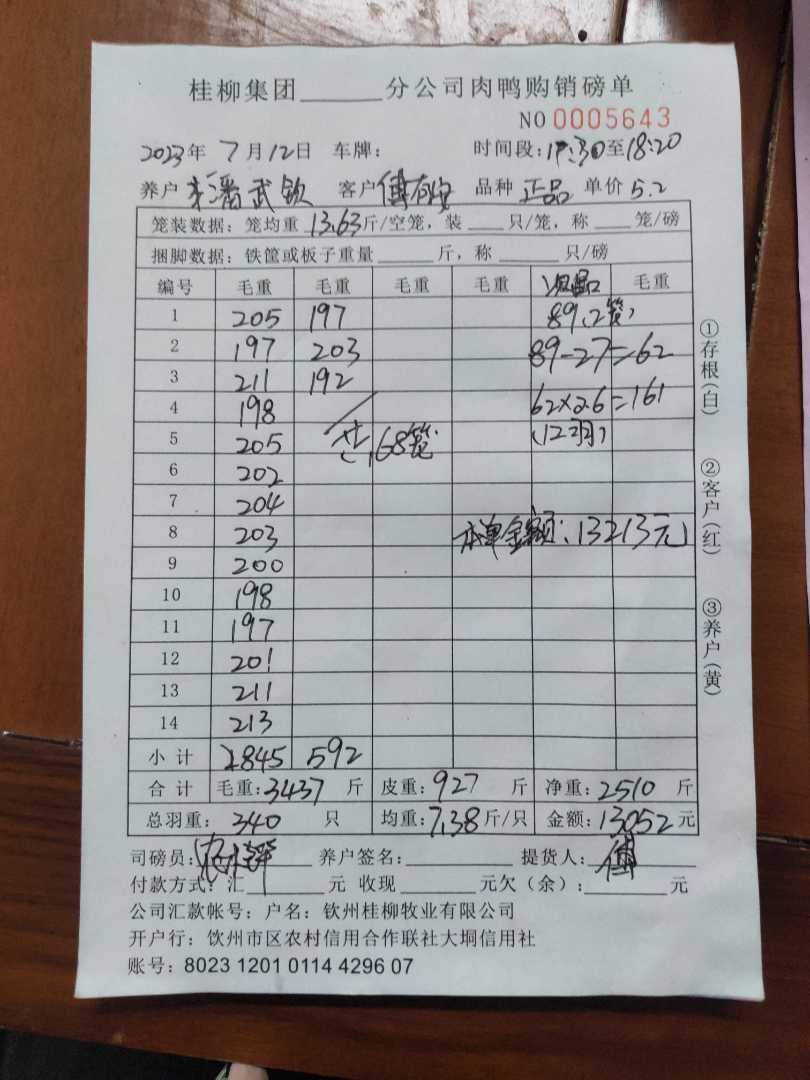 桂柳集团______分公司肉鸭购销磅单
NO 0005643
2023年 7月12日 车牌： 时间段：17:30至18:20
养户 潘武钦 客户 傅 品种 正品 单价 5.2
笼装数据：笼均重 13.63斤/空笼，装____只/笼，称____笼/磅
捆脚数据：铁筐或板子重量______斤，称______只/磅
编号 毛重 毛重 毛重 毛重 次品 毛重
1 205 197 89（2笼）
2 197 203 89-27=62
3 211 192
4 198 62×2.6=161
5 205 共68笼 （12羽）
6 202
7 204
8 203 本单金额：13213元
9 200
10 198
11 197
12 201
13 211
14 213
小计 2845 592
合计 毛重：3437 斤 皮重：927 斤 净重：2510 斤
总羽重：340 只 均重：7.38斤/只 金额：13052元
司磅员： 养户签名：________ 提货人：傅
付款方式：汇______元 收现______元欠（余）：______元
公司汇款帐号：户名：钦州桂柳牧业有限公司
开户行：饮州市区农村信用合作联社大垌信用社
账号：8023 1201 0114 4296 07
①存根（白）
②客户（红）
③养户（黄）